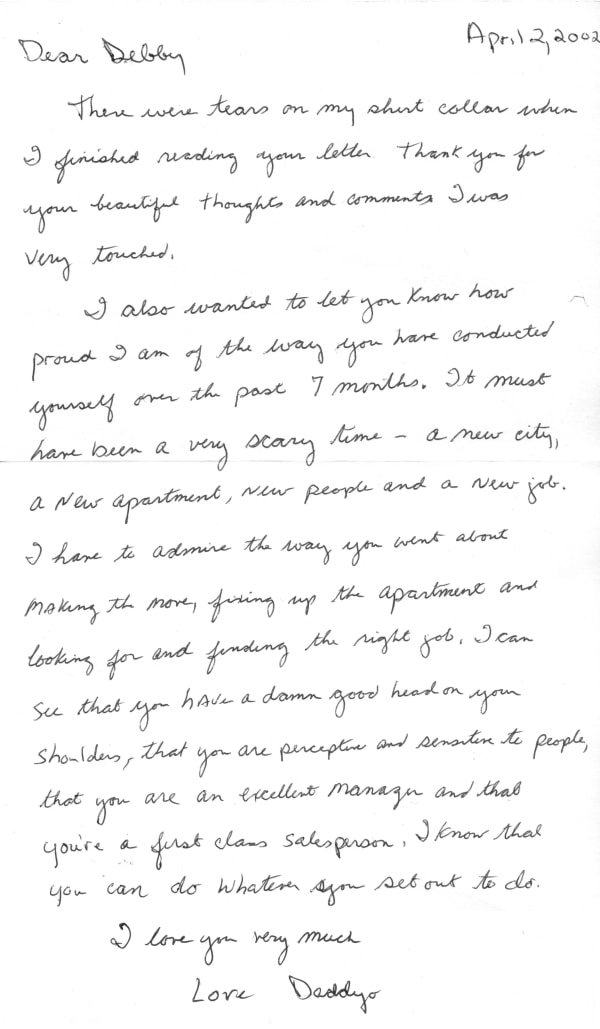 April 2, 2002
Dear Debby
There were tears on my shirt collar when
I finished reading your letter. Thank you for
your beautiful thoughts and comments I was
very touched.
I also wanted to let you know how
proud I am of the way you have conducted
yourself over the past 7 months. It must
have been a very scary time – a new city,
a new apartment, new people and a new job.
I have to admire the way you went about
making the move, fixing up the apartment and
looking for and finding the right job. I can
see that you have a damn good head on your
shoulders, that you are perceptive and sensitive to people,
that you are an excellent manager and that
you're a first class salesperson. I know that
you can do whatever you set out to do.
I love you very much
Love Daddyo